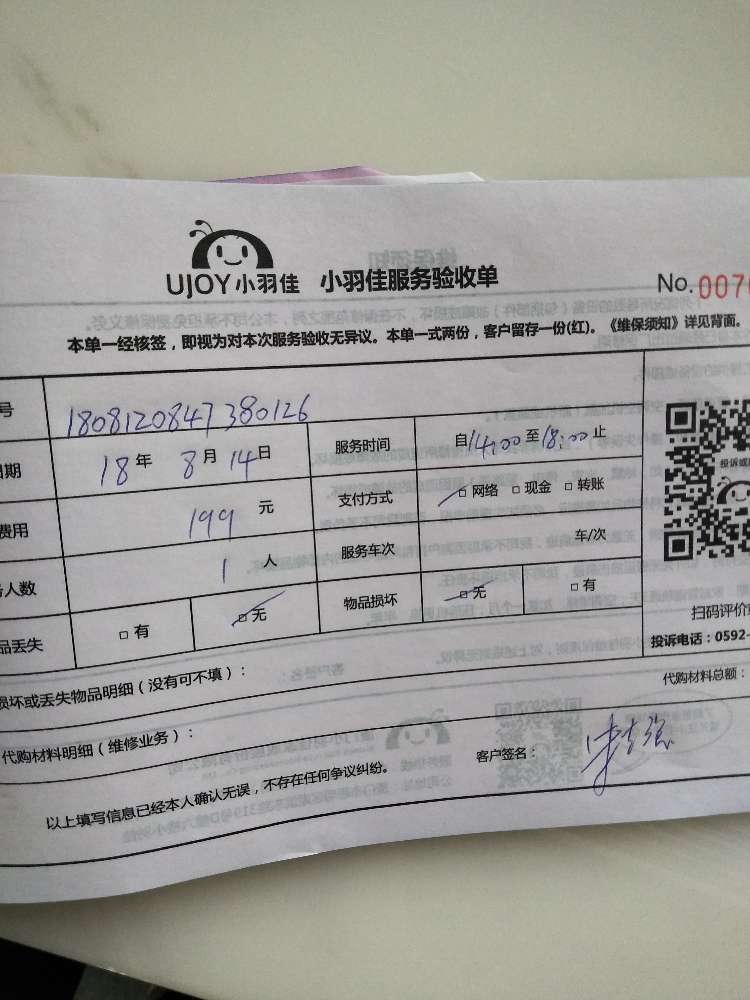 UJOY小羽佳 小羽佳服务验收单 No.0070
本单一经核签，即视为对本次服务验收无异议。本单一式两份，客户留存一份(红)。《维保须知》详见背面。
号 1808120847380126
日期 18年 8月 14日 服务时间 自14:00至18:00止
费用 199 元 支付方式 □网络 □现金 □转账
人数 1 人 服务车次 车/次
品丢失 □有 □无 物品损坏 □无 □有
投诉或
扫码评价
投诉电话：0592-
损坏或丢失物品明细（没有可不填）：
代购材料总额：
代购材料明细（维修业务）：
客户签名：
以上填写信息已经本人确认无误，不存在任何争议纠纷。